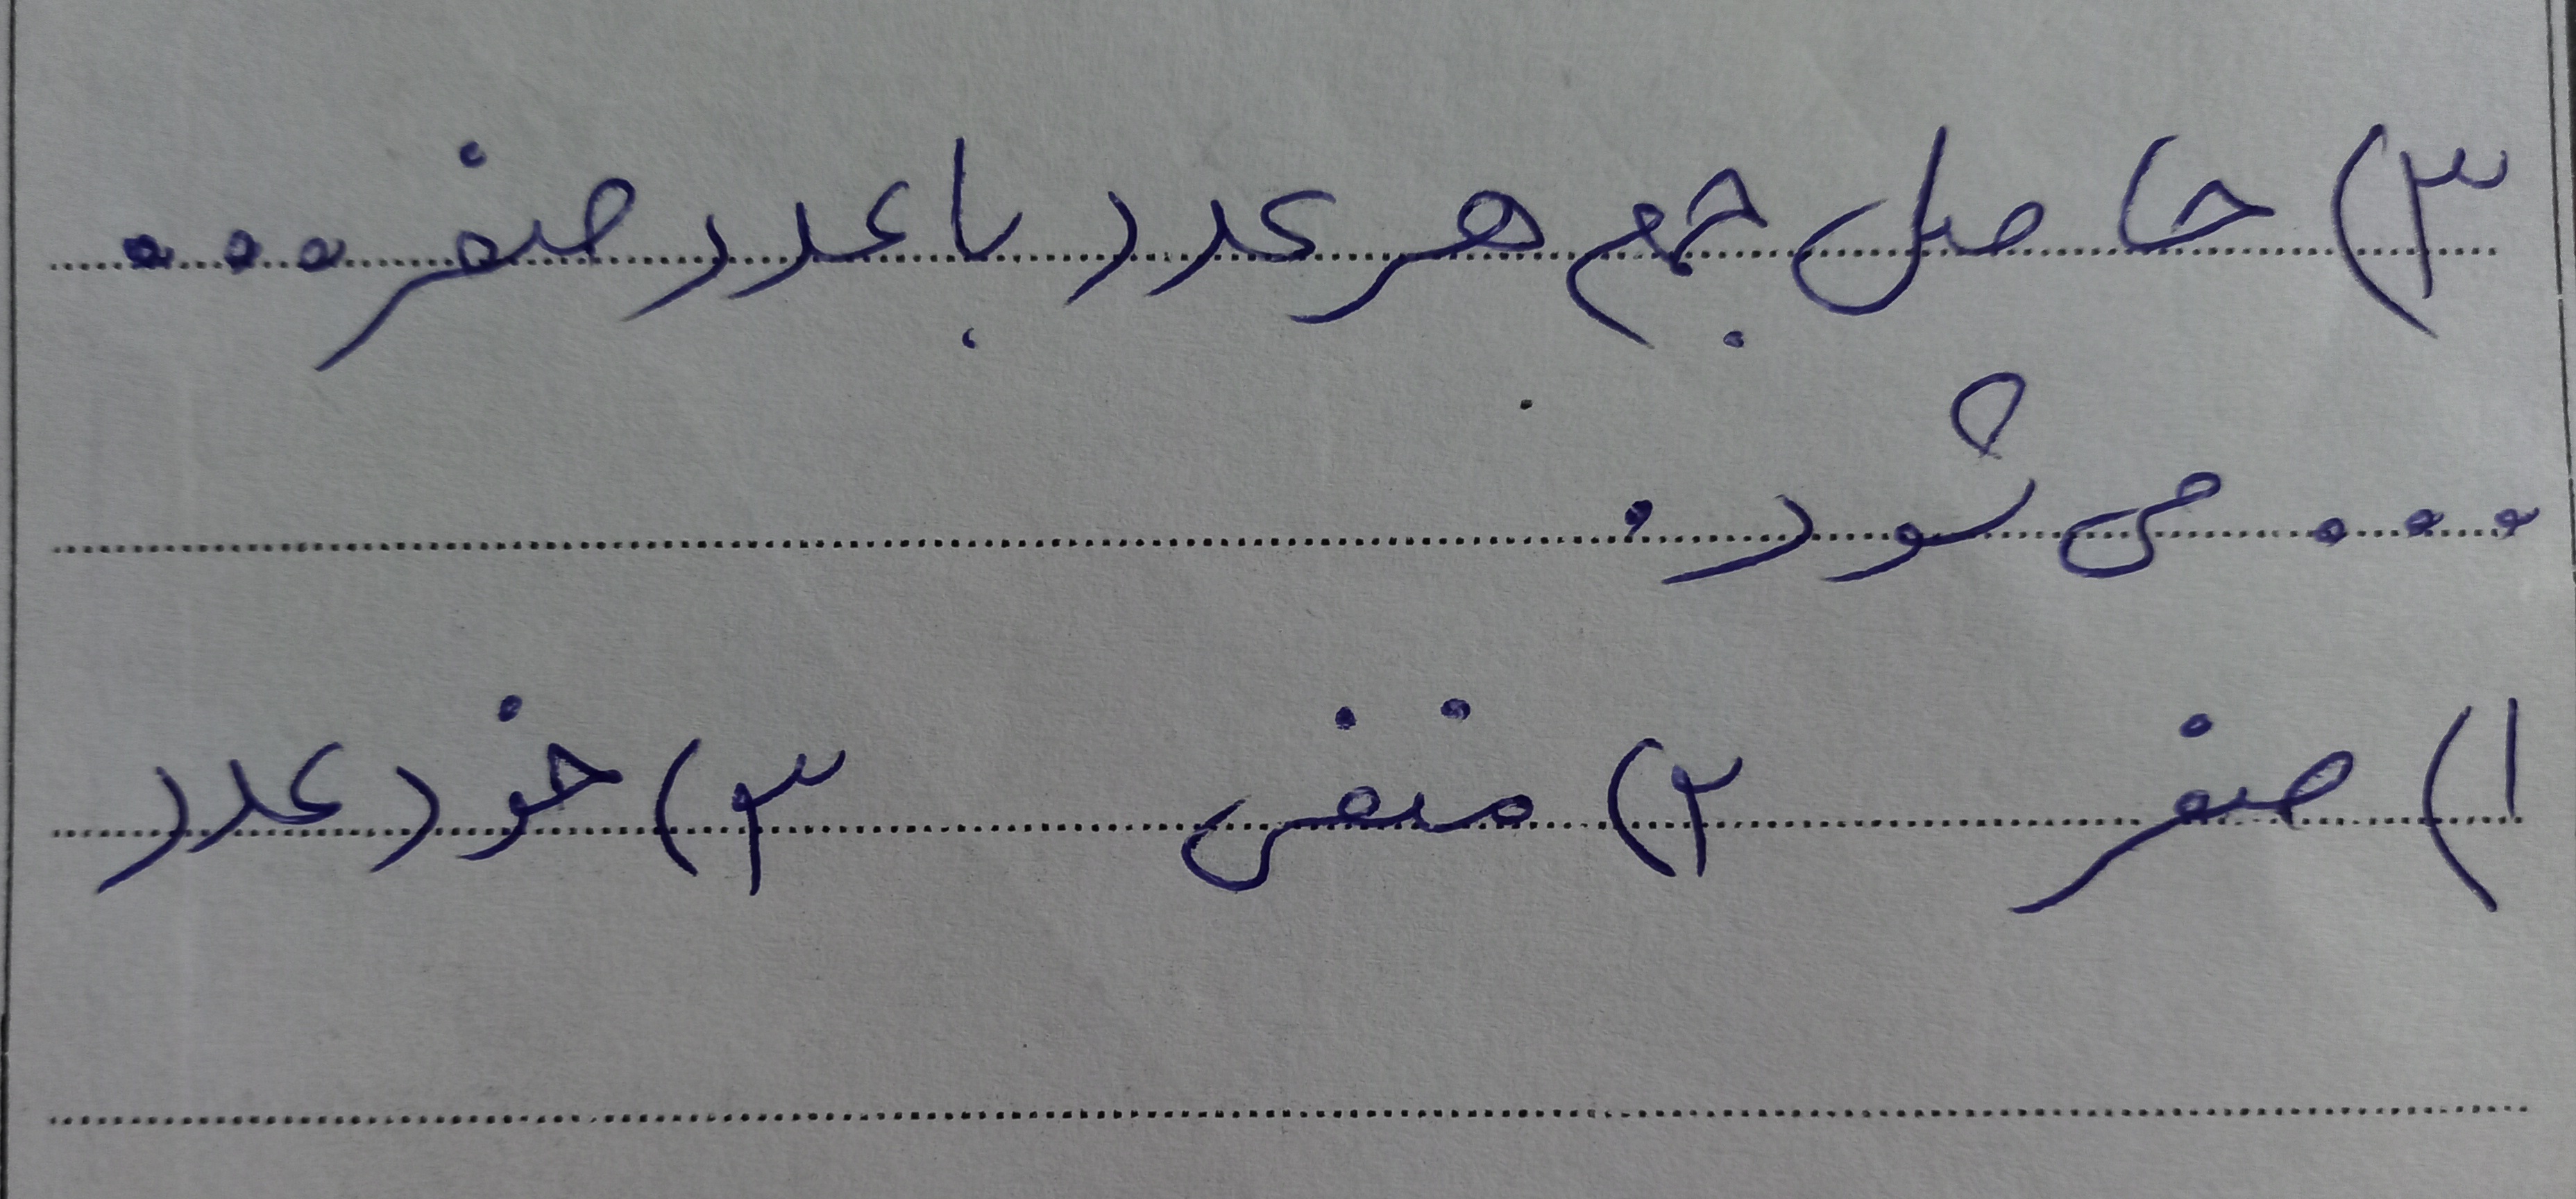 ۳) حاصل جمع هر عدد با عدد صفر ...
... می شود.
۱) صفر ۲) منفی ۳) خود عدد